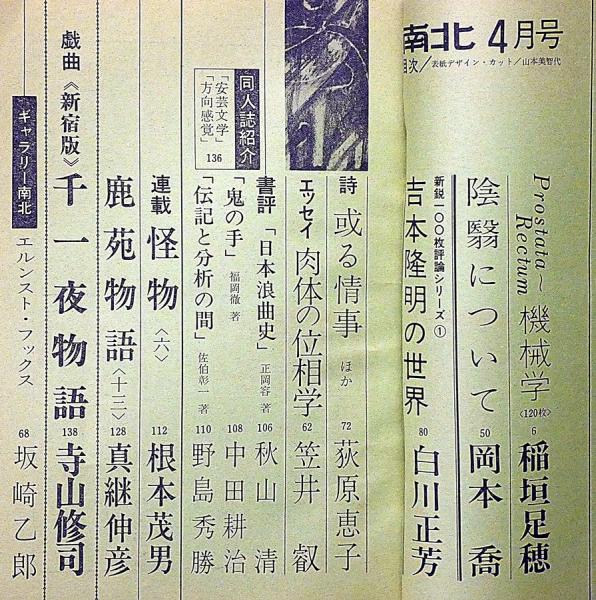 南北 4月号
目次／表紙デザイン・カット／山本美智代
Prostata〜Rectum 機械学〈120枚〉 6 稲垣足穂
陰翳について 50 岡本 喬
新鋭一〇〇枚評論シリーズ①
吉本隆明の世界 80 白川正芳
詩 或る情事 ほか 72 荻原恵子
エッセイ 肉体の位相学 62 笠井 叡
書評「日本浪曲史」 正岡容 著 106 秋山 清
「鬼の手」 福岡徹 著 108 中田耕治
「伝記と分析の間」 佐伯彰一 著 110 野島秀勝
同人誌紹介
「安芸文学」
「方向感覚」
136
連載 怪物〈六〉 112 根本茂男
鹿苑物語〈十三〉 128 真継伸彦
戯曲《新宿版》千一夜物語 138 寺山修司
ギャラリー南北 エルンスト・フックス 68 坂崎乙郎